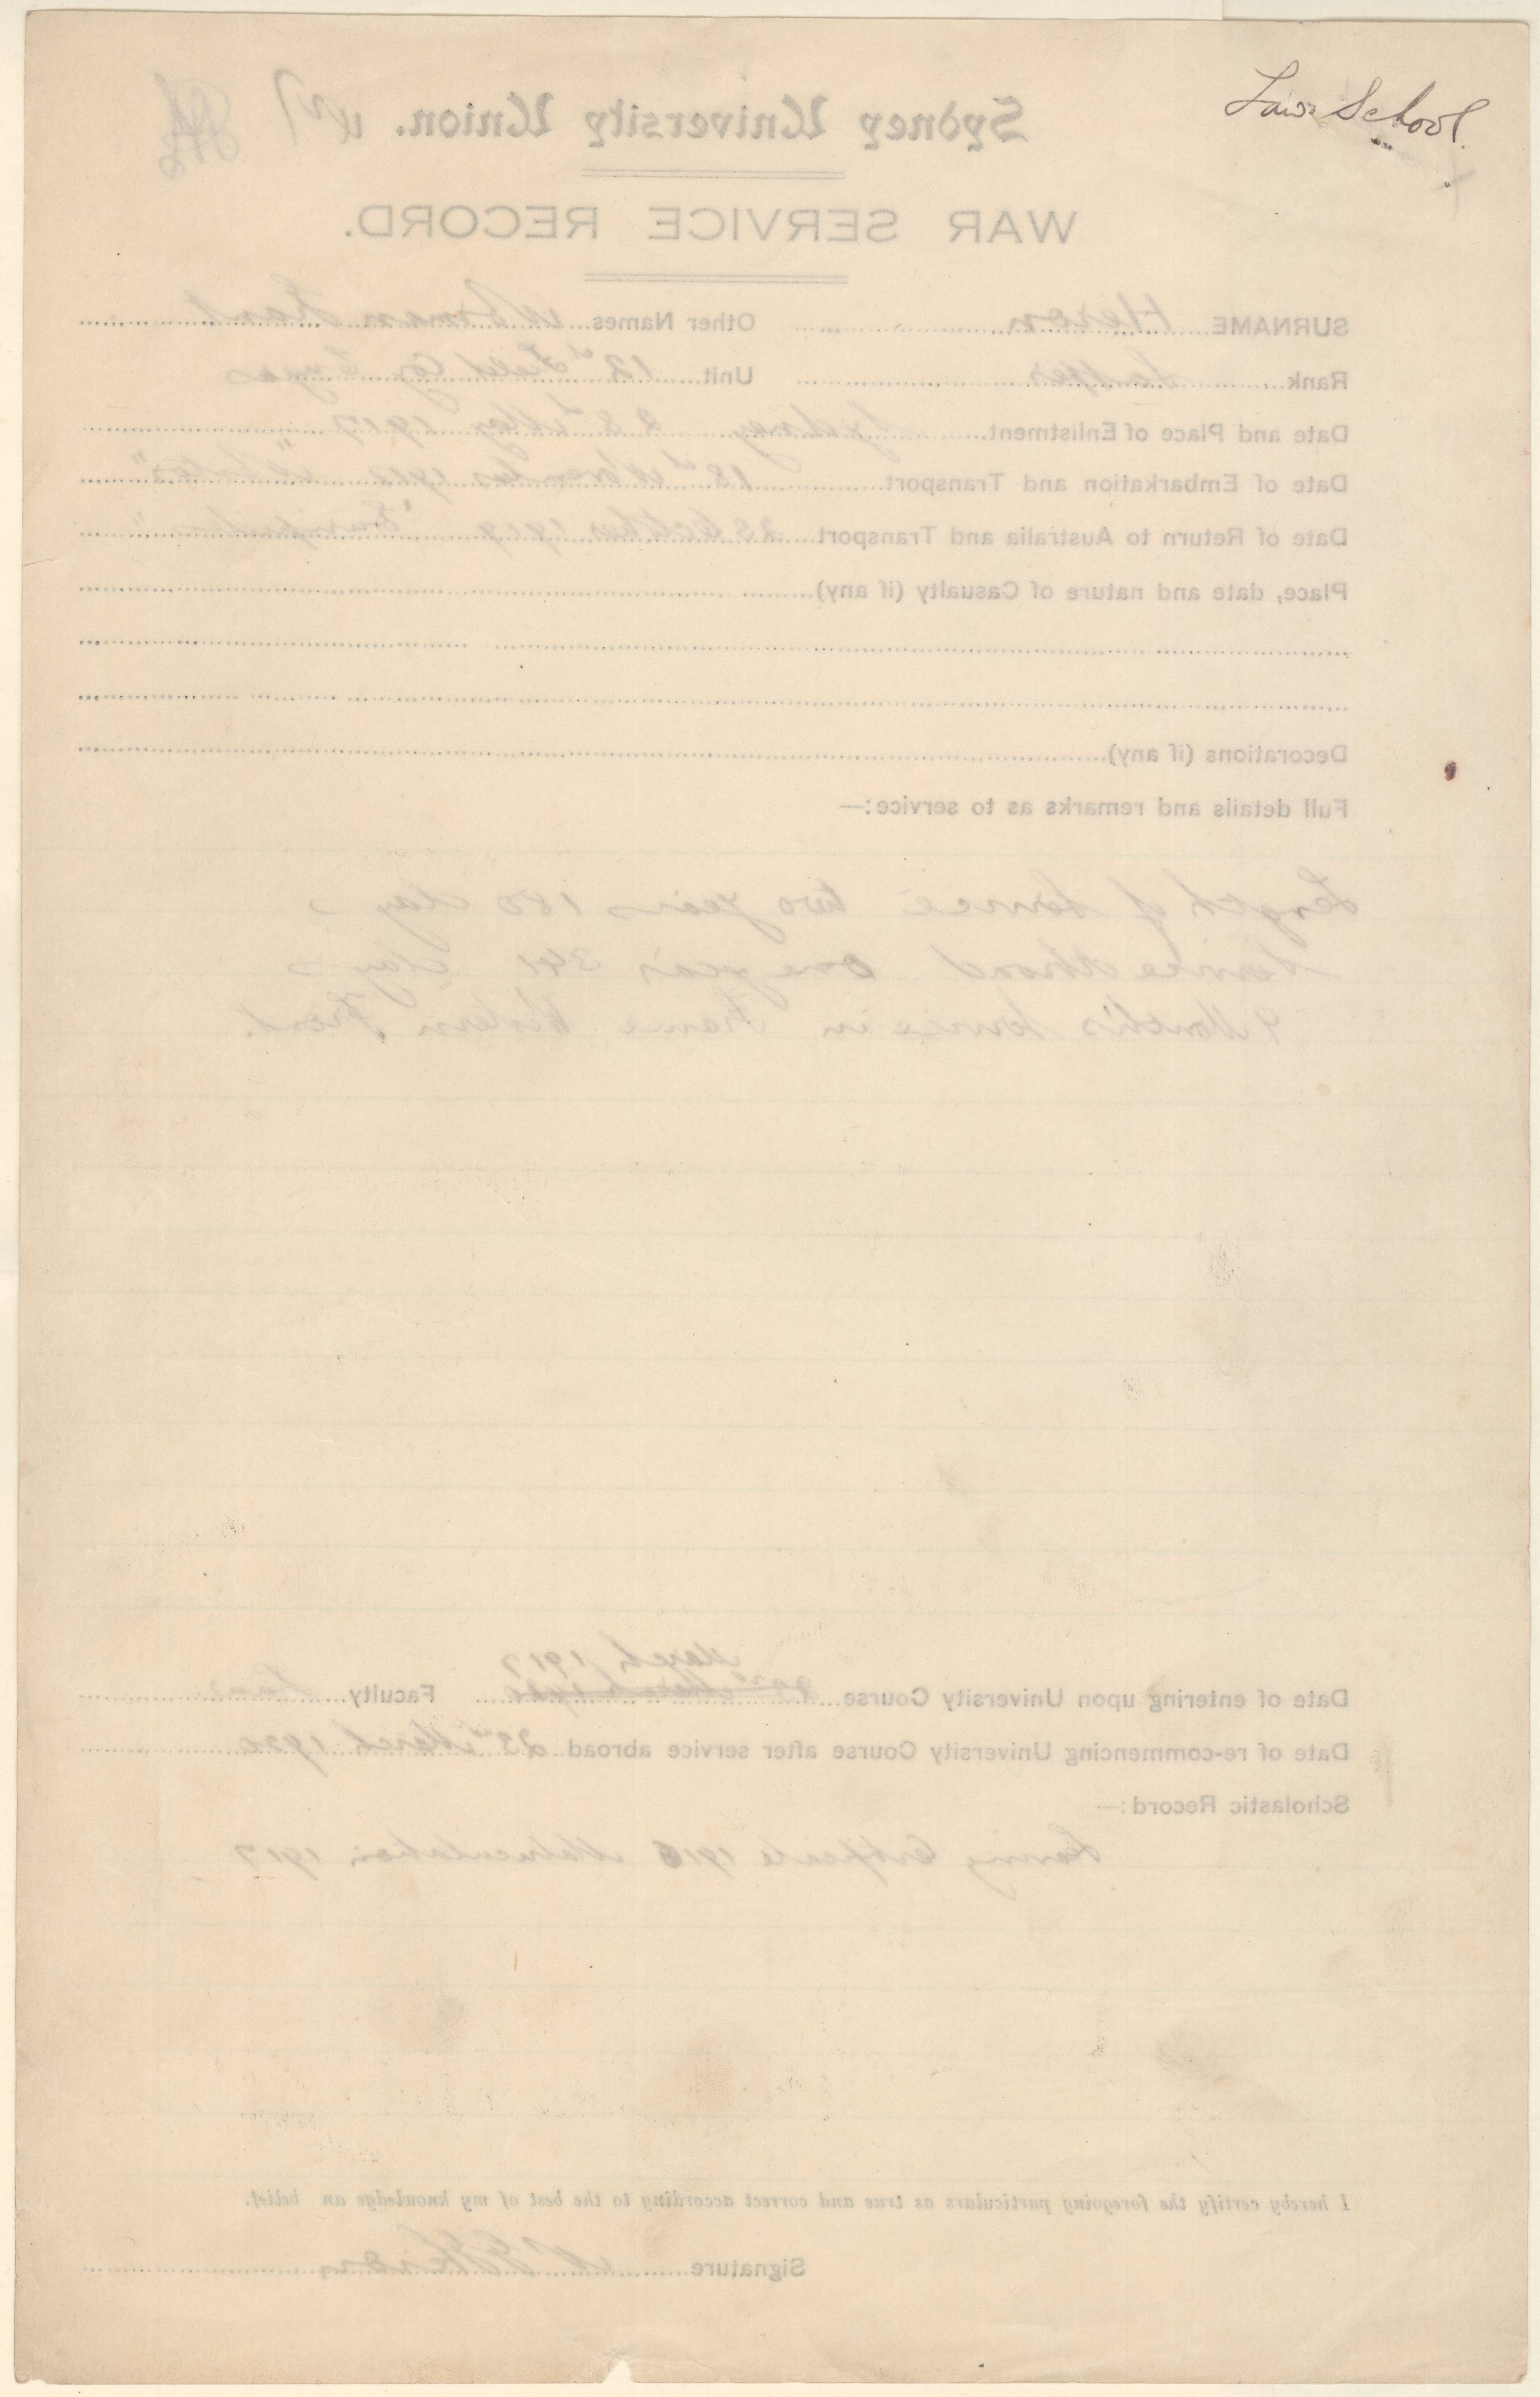 Law School.
Sydney University Union.
WAR SERVICE RECORD.
SURNAME Heron Other Names Norman
Rank Sapper Unit 12th Field Coy Engrs
Date and Place of Enlistment Sydney 28th May 1917
Date of Embarkation and Transport
Date of Return to Australia and Transport 23 October 1919 "Euripides"
Place, date and nature of Casualty (if any)
Decorations (if any)
Full details and remarks as to service:—
Length of Service two years 180 days
Service Abroad One year 341 days
9 Months Service in France Western Front.
March 1917
Date of entering upon University Course Faculty Law
Date of re-commencing University Course after service abroad 23rd March 1920
Scholastic Record:—
Leaving Certificate 1916 Matriculation 1917
I hereby certify the foregoing particulars as true and correct according to the best of my knowledge an belief.
Signature Heron